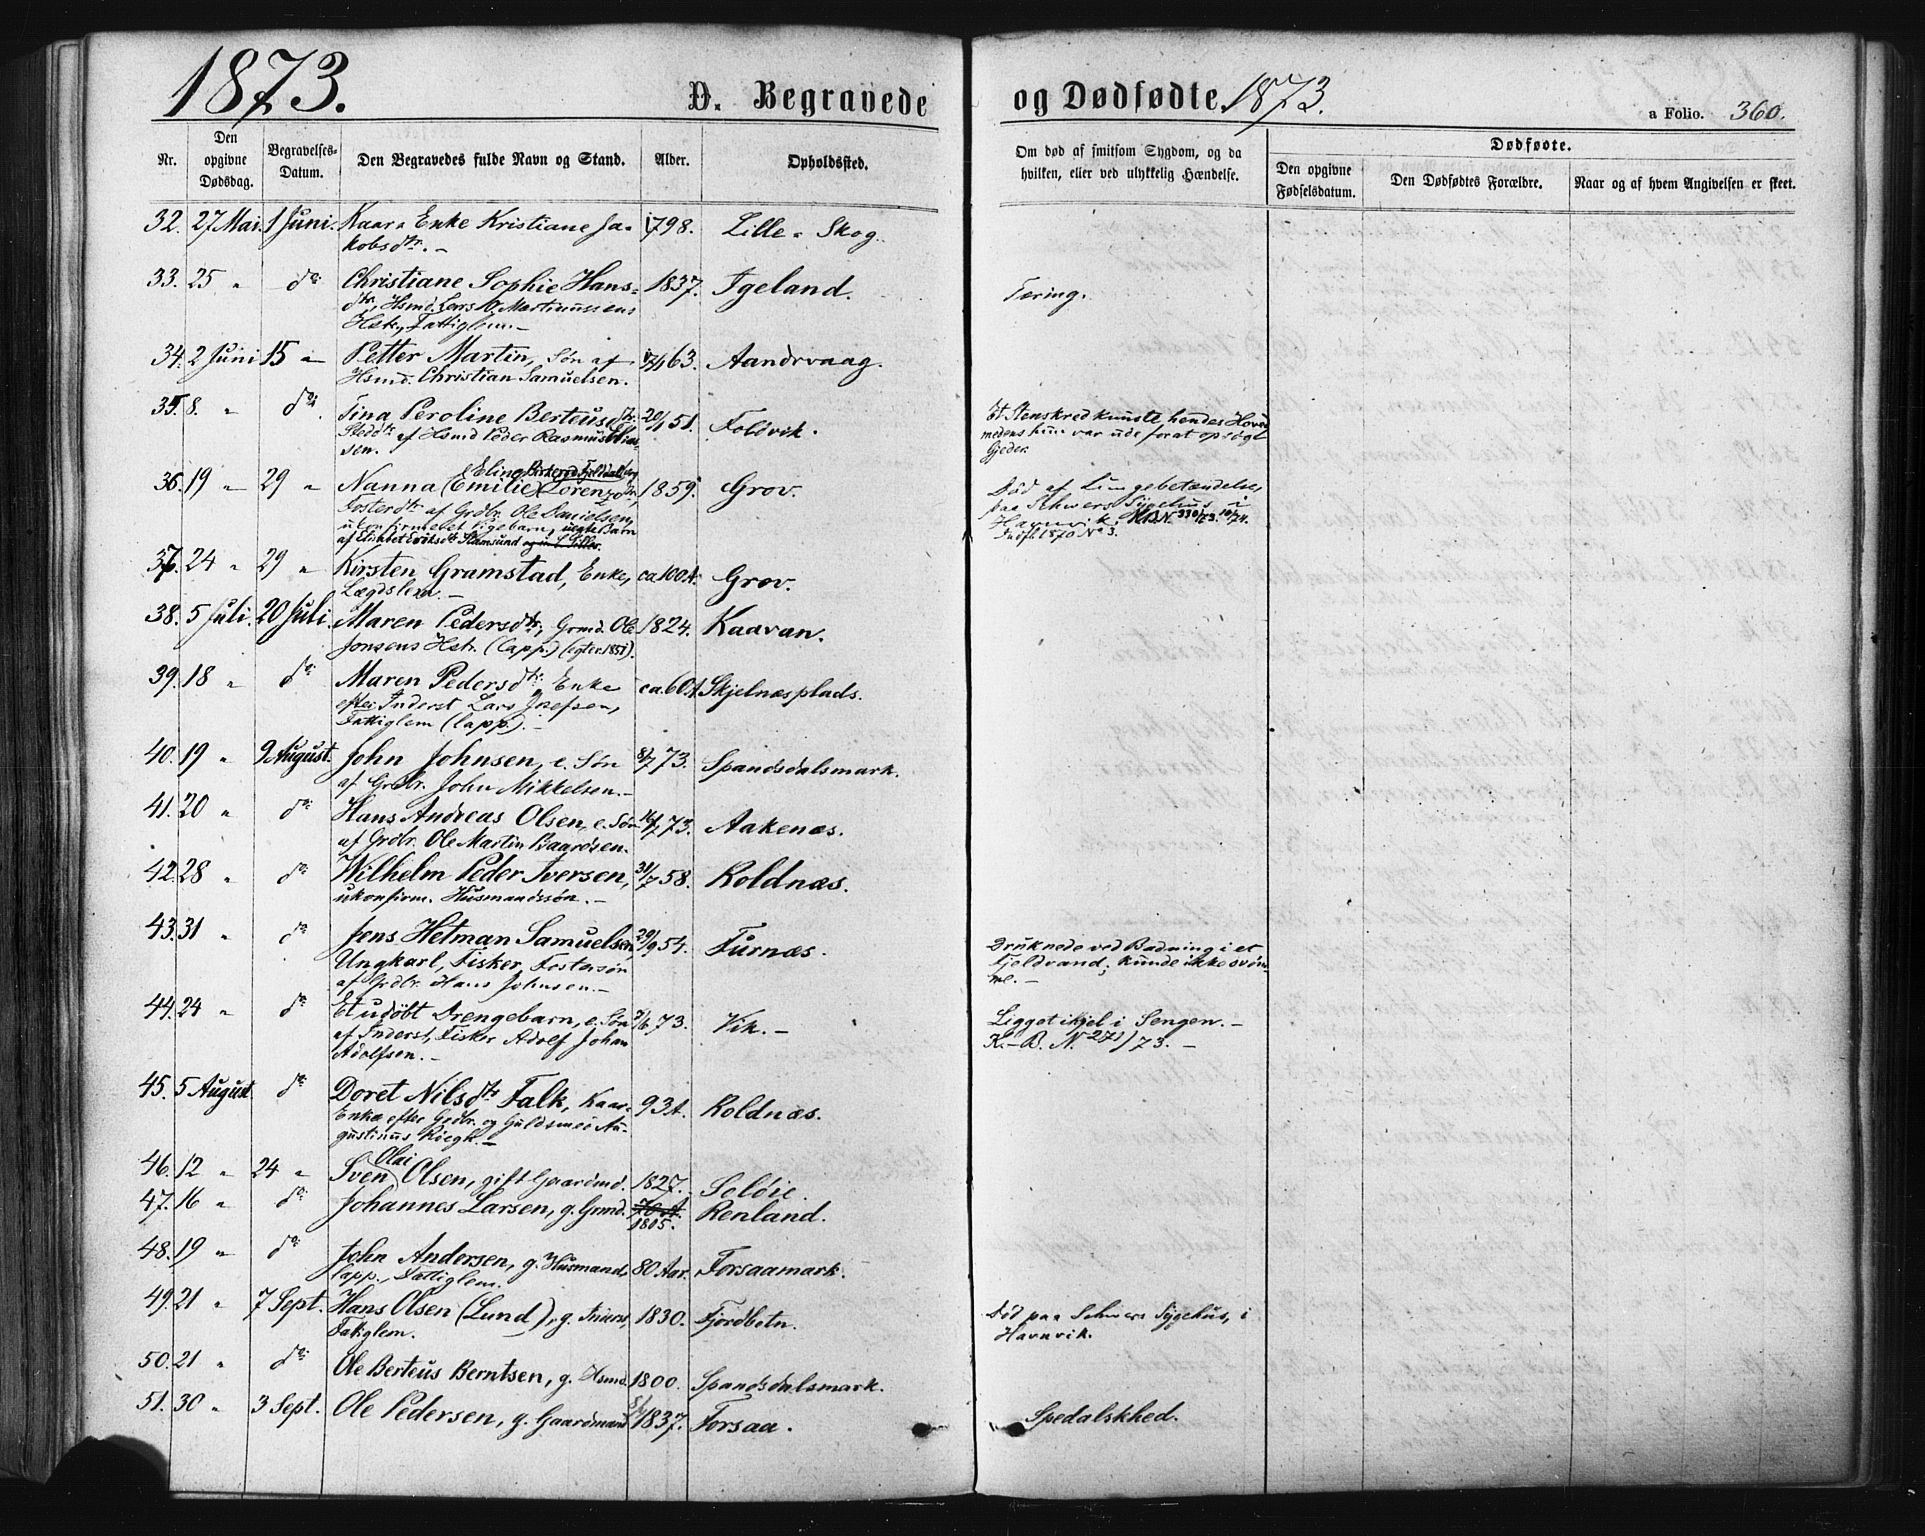 1873.
D. Begravede
og Dødfødte 1873.
a Folio. 360.
Nr.
Den opgivne Dødsdag.
Begravelses-Datum.
Den Begravedes fulde Navn og Stand.
Alder.
Opholdssted.
Om død af smitsom Sygdom, og da hvilken, eller ved ulykkelig Hændelse.
Dødfødte.
Den opgivne Fødselsdatum.
Den Dødfødtes Forældre.
Naar og af hvem Angivelsen er skeet.
32. 27 Mai. 1 Juni. Kaar- Enke Kristiane Ja- 1798. Lille-Skog.
kobsdtr. -
33. 25 " do Christiane Sophie Hans- 1837. Igeland. Tæring.
dtr, Hsmd. Lars Martinussens
Hstr., Fattiglem. -
34. 2 Juni 15 " Petter Martin, Søn af 63. Aandrvaag.
Hsmd. Christian Samuelsen.
35. 8. " do. Tina Peroline Berteusdtr. 20/1 51. Foldvik. Et Stenskred knuste hendes Hoved
Steddtr. af Hsmd Peder Rasmus medens hun var ude forat opsøge
sen. Gjeder.
36. 19 " 29 " Nanna (Emilie) Lorenzdtr, 1859. Grov. Død af Lungebetændelse,
Elina
Fosterdtr. af Grdbr. Ole Danielsen, paa Schwers Sygehus i
ukonfirmeret Pigebarn, uegte Barn Havnvik. K.B.N. 330/73. 10/74.
af Elisabet Eriksdtr Stamsund Indfl. 1870 No 3.
37. 24 " 29 " Kirsten Gramstad, Enke, ca 100 A. Grov.
Lægdslem. -
38. 5 Juli. 20 Juli. Maren Pedersdtr, Grmd. Ole 1824. Kaavan.
Jonsens Hstr. (lapp.) (egtev. 1851).
39. 18 " do Maren Pedersdtr. Enke ca. 60 A. Skjelnæsplads.
efter Inderst Lars Josefsen,
Fattiglem (lapp.). -
40. 19 " 9 August. John Johnsen, e. Søn 8/7 73. Spandsdalsmark.
af Grdbr. John Mikkelsen. -
41. 20 " do Hans Andreas Olsen, e. Søn 16/7 73. Aakenæs.
af Grdbr. Ole Martin Baardsen.
42. 28 " do Wilhelm Peder Iversen, 31/7 58. Roldnæs.
ukonfirm. Husmandssøn. -
43. 31 " do Jens Hetman Samuelsen, 29/9 54. Furnæs. Druknede ved Badning i et
Ungkarl, Fisker, Fostersøn Fjeldvand; kunde ikke svøm-
af Grdbr. Hans Johnsen. - me. -
44. 24 " do Et udøbt Drengebarn, e. Søn 7/6 73. Vik. - Ligget ihjel i Sengen. -
af Inderst, Fisker Adolf Johan K.-B. N. 271/73. -
Adolfsen. -
45. 5 August do Doret Nilsdtr Falk, Kaar- 93 A. Roldnæs.
Enke efter Grdbr. og Guldsmed Au-
gustinus Krogh. -
46. 12 " 24 " Sven Olai Olsen, gift Gaardmd. 1827. Seløie.
47. 16 " do Johannes Larsen, g. Grmd. 70 A. 1805. Renland.
48. 19 " do John Andersen, g. Husmand, 80 Aar. Forsaamark.
lapp., Fattiglem.
49. 21 " 7 Sept. Hans Olsen (Lund), g. Inderst, 1830. Fjordbotn. Død paa Schwers Sygehus, i
Fattiglem. Havnvik.
50. 21 " do Ole Berteus Berntsen, g. Hsmd. 1800. Spandsdalsmark.
51. 30 " 3 Sept. Ole Pedersen, g. Gaardmand 1837. Forsaa. Spedalskhed.